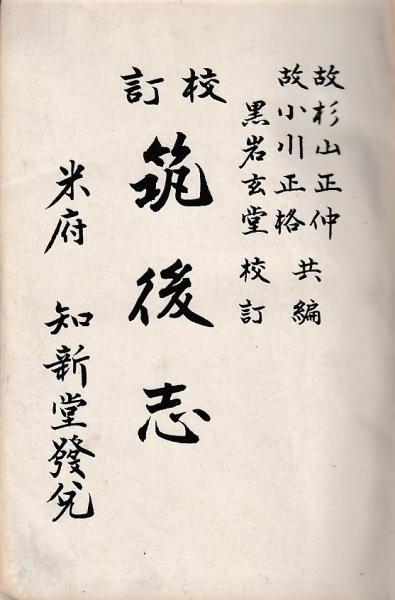 故杉山正仲
故小川正格 共編
黒岩玄堂 校訂
校訂
筑後志
米府 知新堂發兌